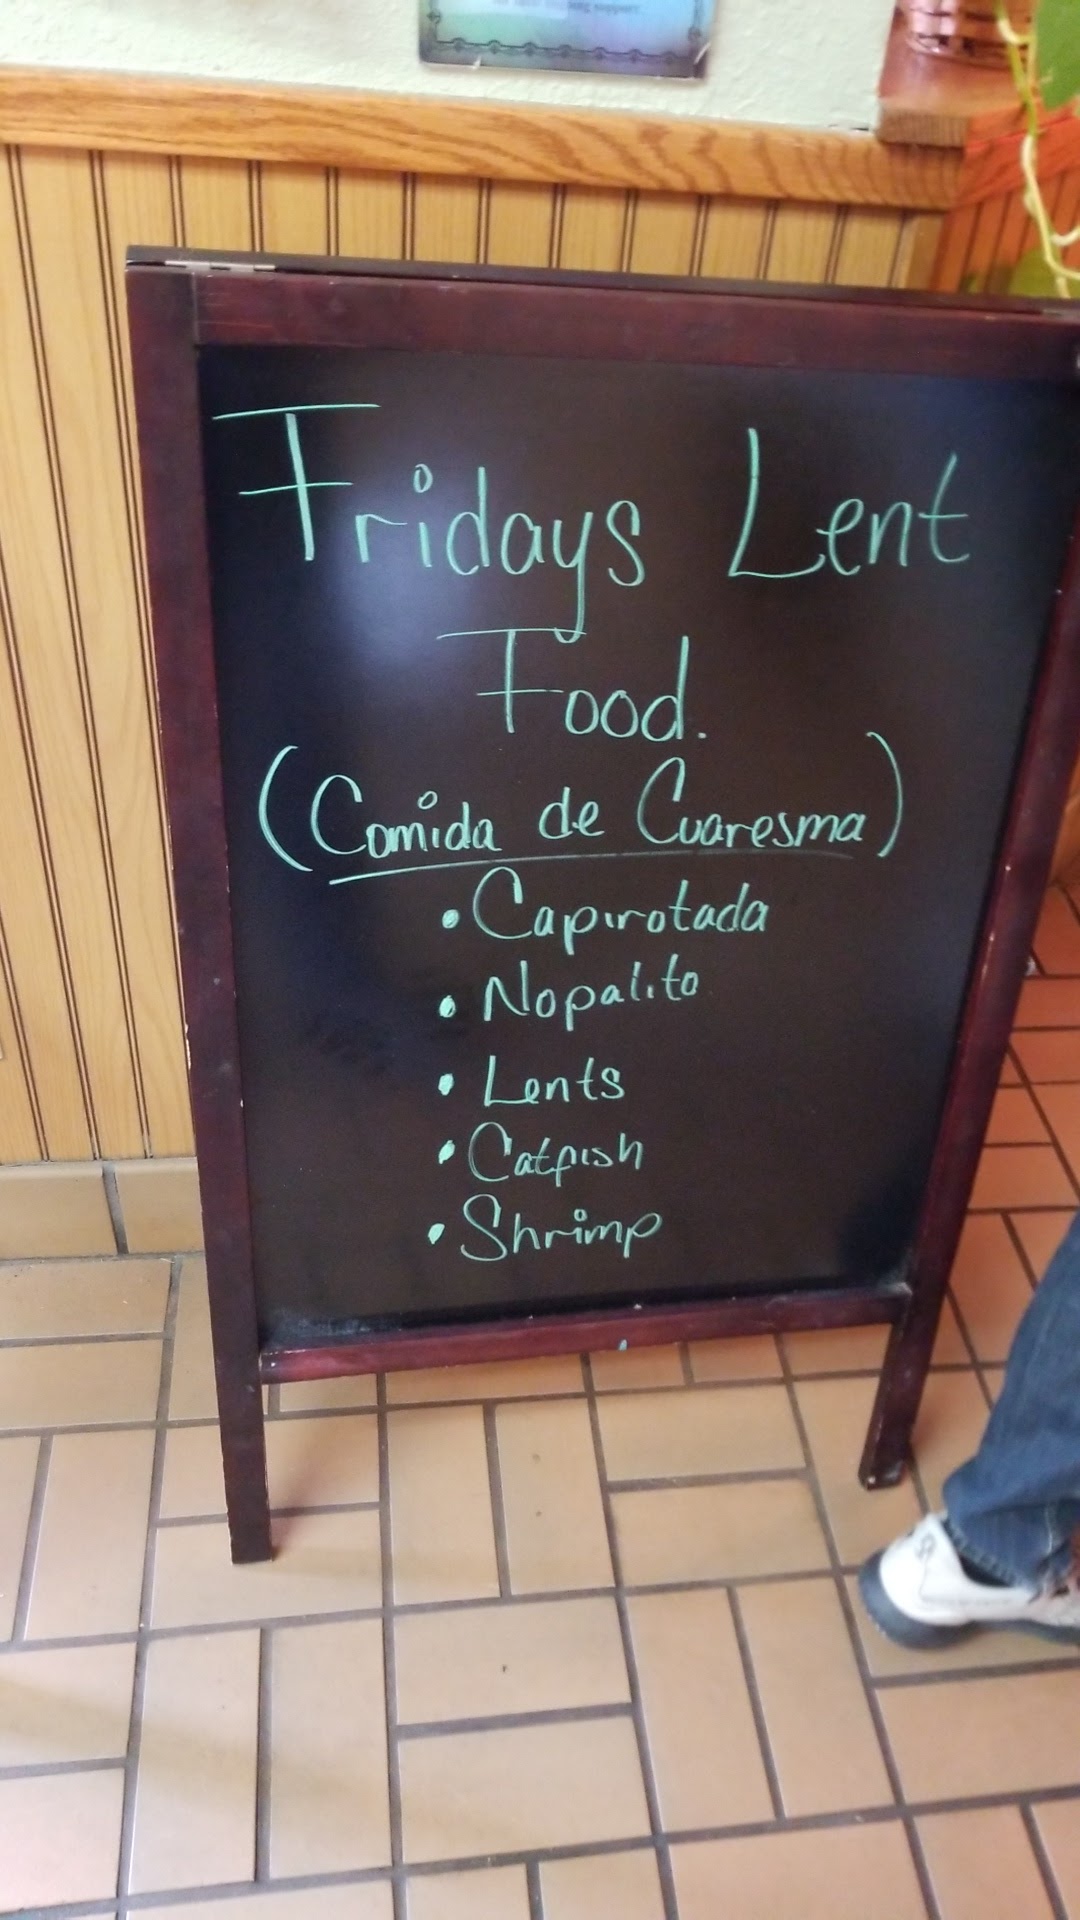 Fridays Lent
Food.
(Comida de Cuaresma)
• Capirotada
• Nopalito
• Lents
• Catfish
• Shrimp